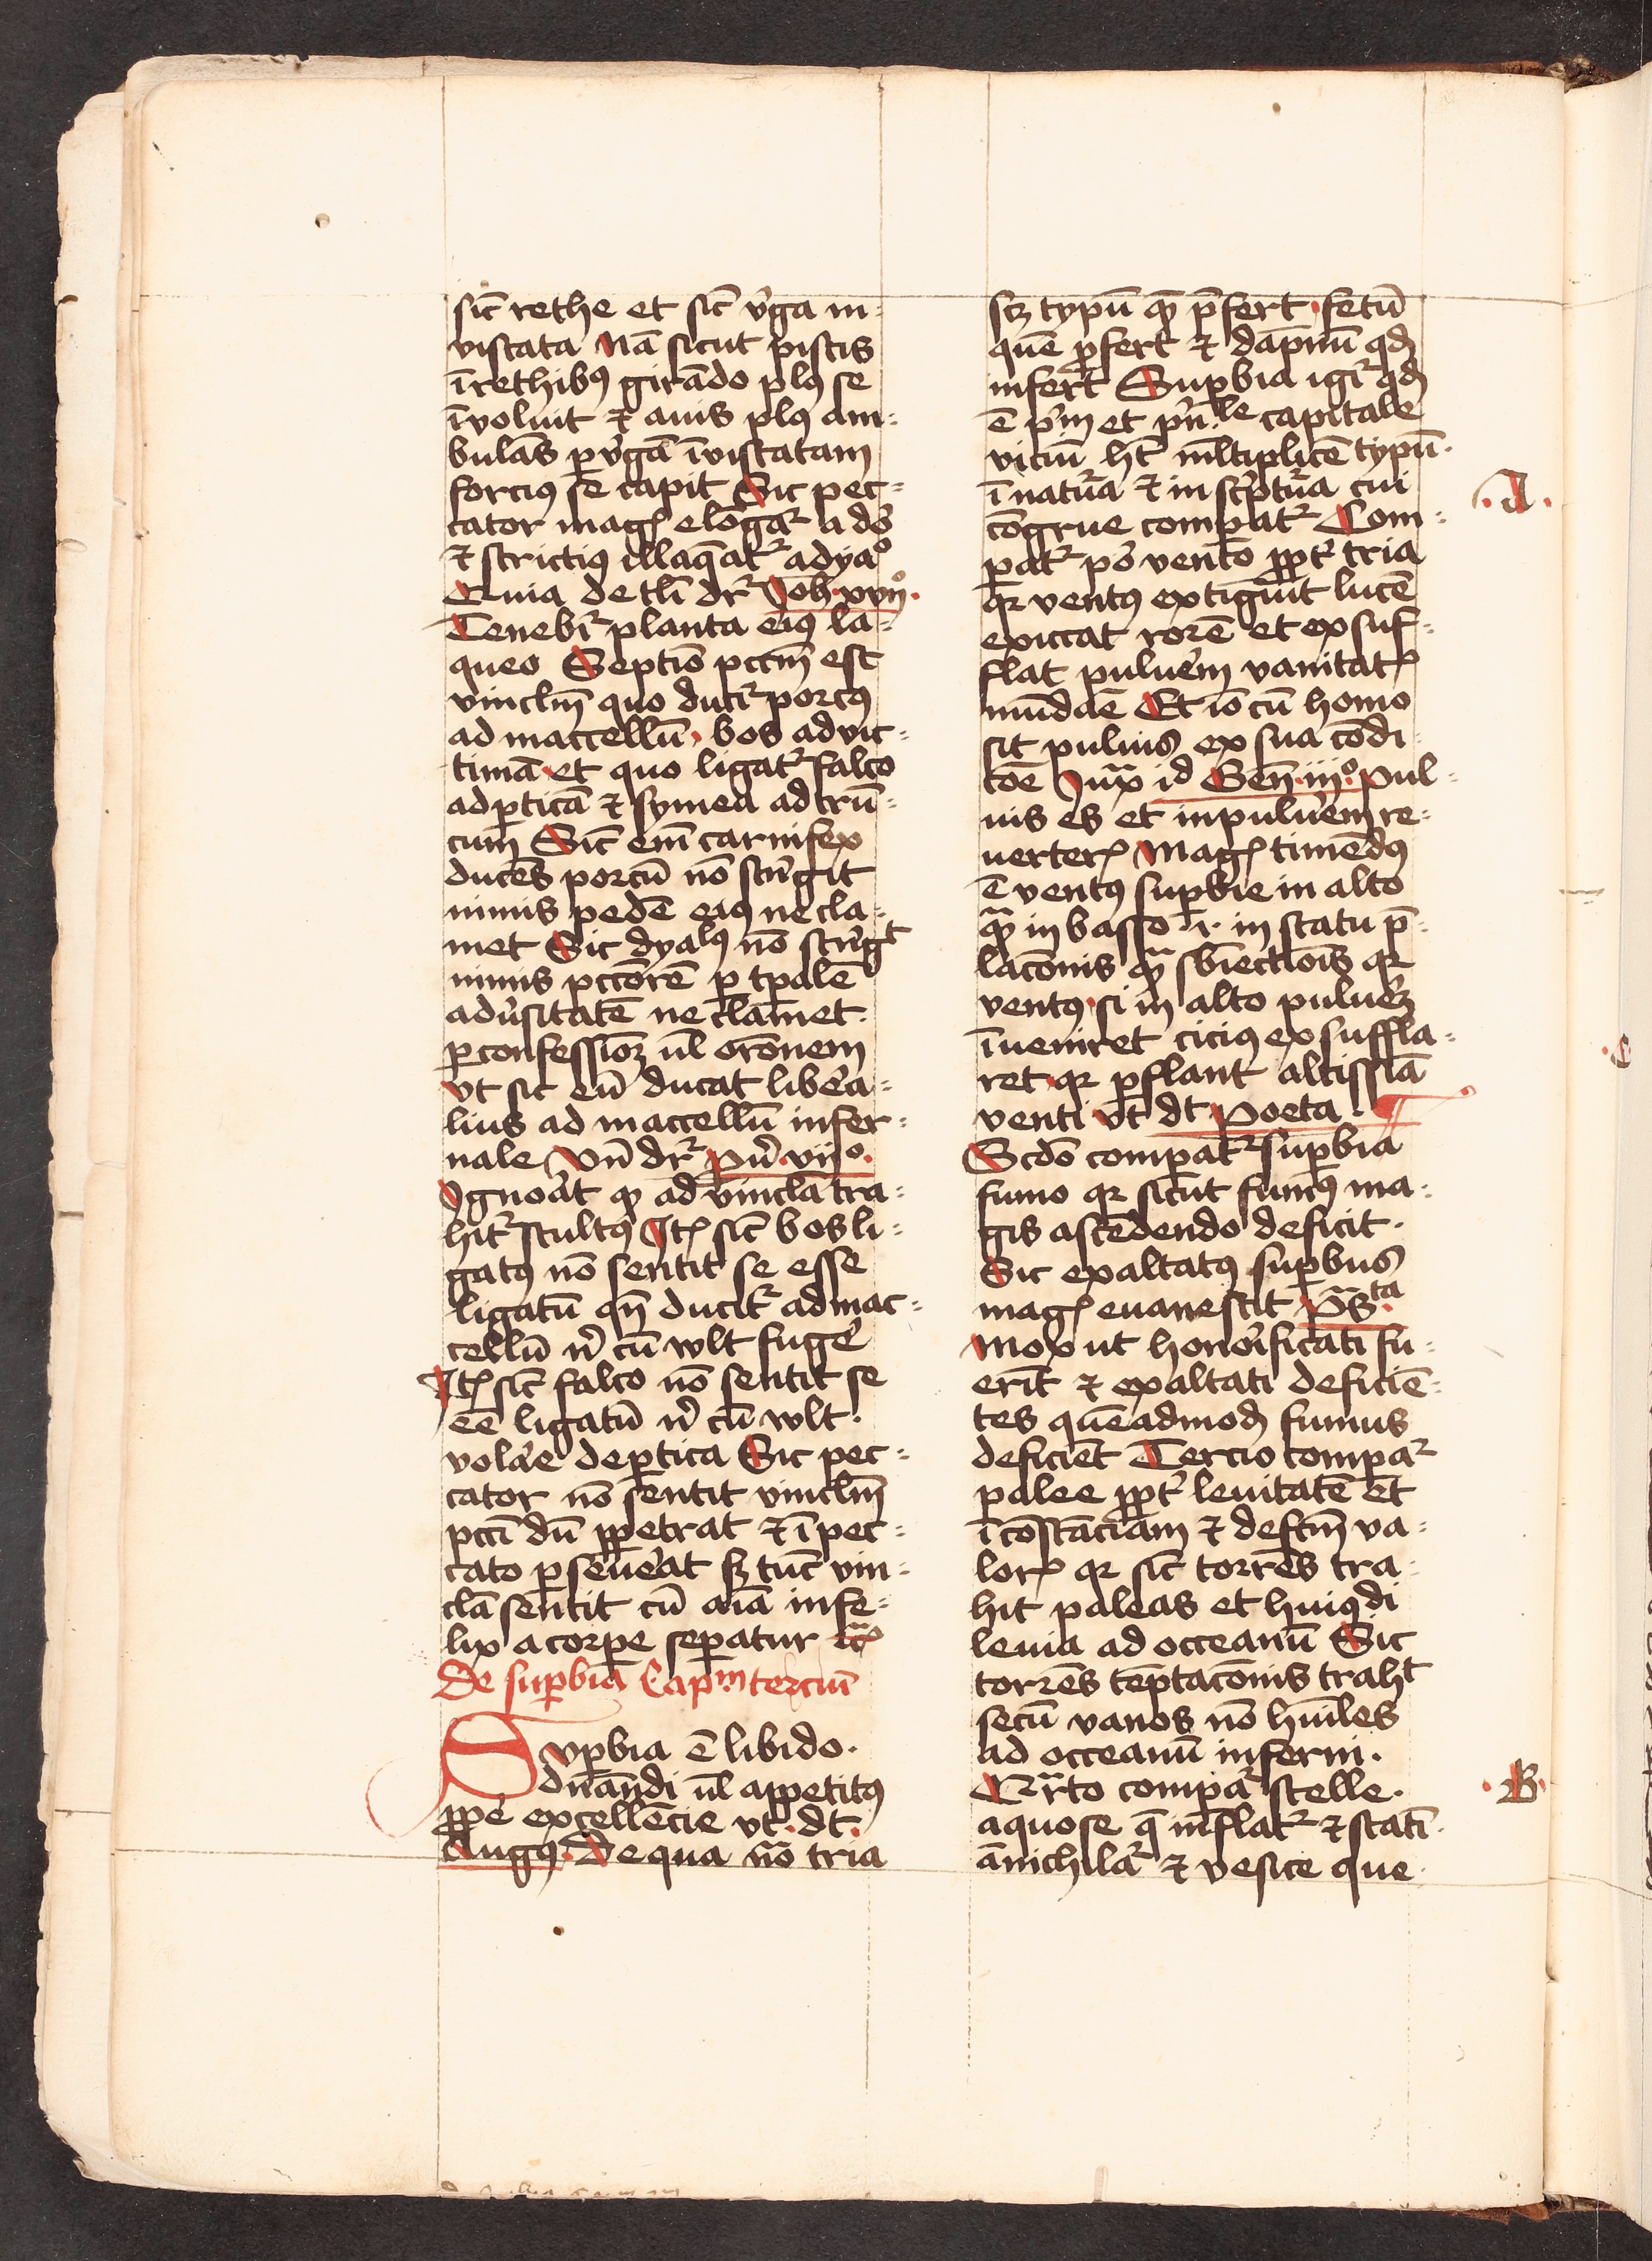 sic̄ rethe et sic̄ v̾ga in-
viscata Nā sicut piscis
ī rethibꝯ girādo plꝯ se
īvoluit ⁊ auis plꝯ am-
bulās ꝑ v̾gā īviscatam
forciꝯ se capit Sic pec-
cator magꝭ elōgat᷑ a dō
⁊ strictiꝯ illaq̄at᷑ a dyaᵒ
Quia de tli dr᷑ Joh xviijᵒ.
Tenebit᷑ planta eiꝯ la-
queo Septīo pctm̄ est
vinclm̄ quo ducit᷑ porcꝯ
ad maccellū, bos ad vic-
timā et quo ligat᷑ falco
ad ꝑticā ⁊ symea ad trū-
cum Sic̄ em̄ carnifex
ducēs porcū nō stri̾git
nimis pedē eiꝯ ne cla-
met Sic dyalꝯ nō stri̾gᵗ
nimis pctōrē ꝑ tp̄alē
adu̾sitatē ne clamet.
ꝑ confessioꝫ ul̄ orōnem
vt sic eū ducat libe̾a-
lius ad maccellū infer-
nale Vn̄ dr᷑ Pu̾. vijᵒ.
Igno̾at ꝙ ad vincla tra-
hit᷑ stultꝯ Itꝭ sic̄ bos li-
gatꝯ nō sentit se esse
ligatū qn̄ ducit᷑ ad mac-
cellū n̾ cū wlt fuge̾
Itꝭ sic̄ falco nō sentit se
eē ligatū n̾ cū wlt.
vola̾e de ꝑtica Sic pec-
cator nō sentit vinclm̄
pcti dū ꝑpetrat ⁊ ī pec-
cato ꝑseue̾at sꝫ tūc vin-
cla sentit cū aīa infe-
lix a corpe seꝑatur
De suꝑbia Capᵐ terciū
Suꝑbia ē libido.
dn̄andi ul̄ appetitꝯ
ꝓpe̾ excellēcie vt. dt̄.
Augꝯ. De qua nō tria
scꝫ typū quē p̄fert. fetū
quē ꝓfert ⁊ dāpnū qd̄
infert Suꝑbia igit᷑ qd̄
ē p̾m et p̾n.ˡᵉ capitale
viciū hꝫ ml̄tiplicē typū.
ī natura ⁊ in sc̾ptura cui
cōgrue comꝑat᷑ Com-
ꝑat᷑ p̾o vento ꝓpt̾ tria
qꝛ ventꝯ extiguit lucē
exiccat rorē et exsuf-
flat pulue̾m vanitatꝭ
mūdāe Et iō cū homo
sit puluis ex sua cōdi-
tōe Juxᵃ id Gen̄. iijᵒ. Pul-
uis es et in pulue̾m re-
uerterꝭ Magꝭ timēdꝯ
ē ventꝯ suꝑbie in alto
qᵃꝫ in basso .i. in statu p̄-
lacōnis qᵃꝫ sbiectiōis qꝛ
ventꝯ. si in alto pulue̾ꝫ
īueniret ciciꝯ exsuffla-
ret. qꝛ ꝑflant altissīa
venti vt dt̄ Poeta. ¶
Scdō comꝑat᷑ suꝑbia
fumo qꝛ sicut fumꝯ ma-
gis ascēdendo deficit.
Sic exaltatꝯ suꝑbus
magꝭ euanescit Psᵃ.ᵗᵃ
Mox ut hono̾ificati fu-
erīt ⁊ exaltati deficiē-
tes quēadmodū fumus
deficiēt Tercio comꝑat᷑
palee ꝓpt̾ leuitatē et
īcōstāciam ⁊ defctm̄ va-
lorꝭ qꝛ sic̄ torrēs tra-
hit paleas et huiꝯdi
leuia ad occeanū Sic
torrēs tēptacōnis trahᵗ
secū vanos nō hūiles
ad occeanū inferni.
Qᵃrto comꝑat᷑ stelle.
aquose q̄ inflat᷑ ⁊ statī.
ānichilat᷑ ⁊ vesice que
.A.
.B.